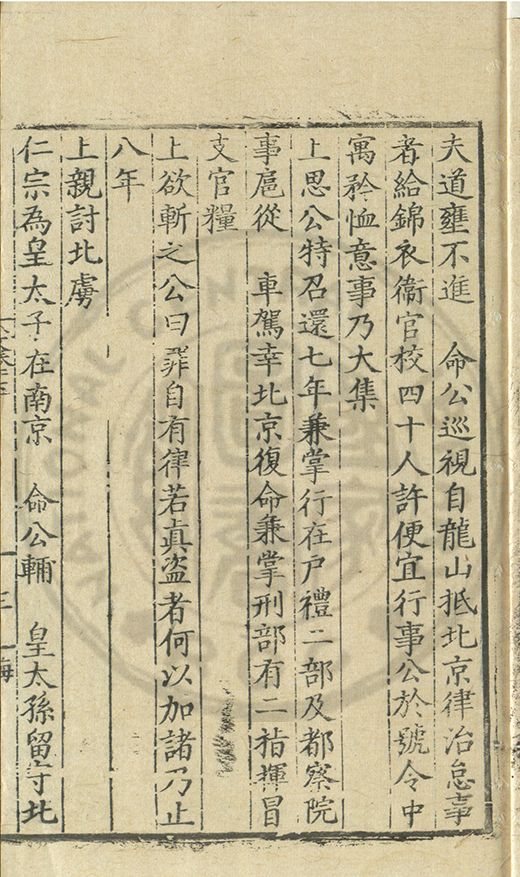 夫道壅不進　命公巡視自龍山抵北京律治怠事
者給錦衣衞官校四十人許便宜行事公於號令中
寓矜恤意事乃大集
上思公特召還七年兼掌行在戶禮二部及都察院
事扈從　車駕幸北京復命兼掌刑部有二指揮冒
支官糧
上欲斬之公曰罪自有律若眞盗者何以加諸乃止
八年
上親討北虜
仁宗為皇太子在南京　命公輔　皇太孫留守北